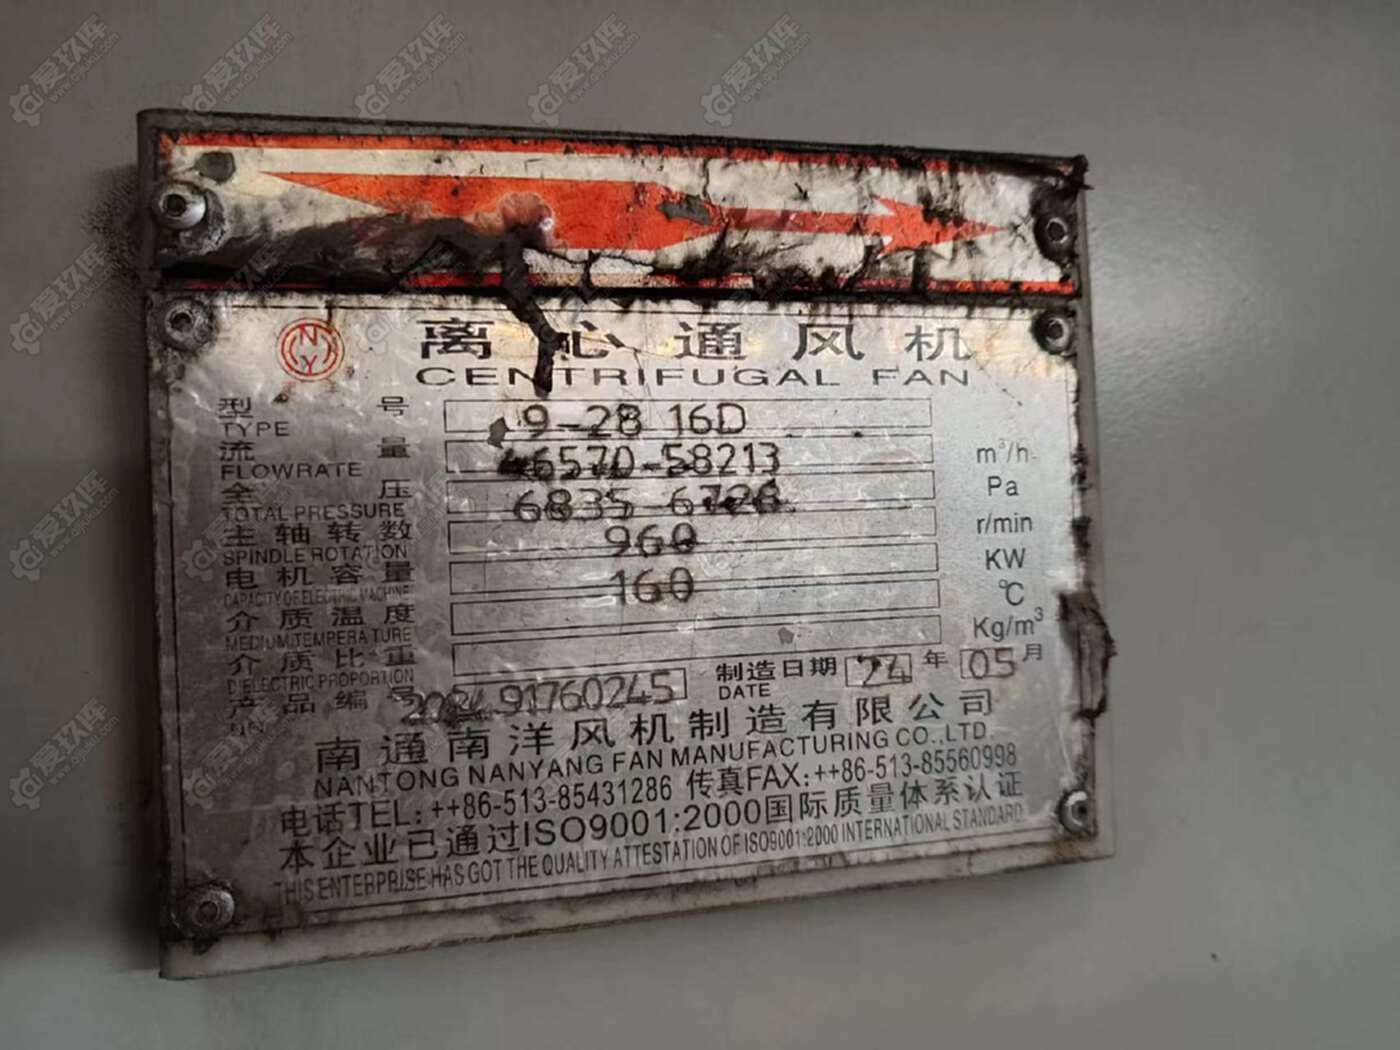 NY
离心通风机
CENTRIFUGAL FAN
型号 9-28 16D
TYPE
流量 46570-58213 m³/h
FLOWRATE
全压 6835-6728 Pa
TOTAL PRESSURE
主轴转数 960 r/min
SPINDLE ROTATION
电机容量 160 KW
CAPACITY OF ELECTRIC MACHINE
介质温度 ℃
MEDIUM TEMPERATURE
介质比重 Kg/m³
DIELECTRIC PROPORTION
产品编号 制造日期 24 年 05 月
DATE
南通南洋风机制造有限公司
NANTONG NANYANG FAN MANUFACTURING CO.,LTD.
电话TEL:++86-513-85431286 传真FAX:++86-513-85560998
本企业已通过ISO9001:2000国际质量体系认证
THIS ENTERPRISE HAS GOT THE QUALITY ATTESTATION OF ISO9001:2000 INTERNATIONAL STANDARD